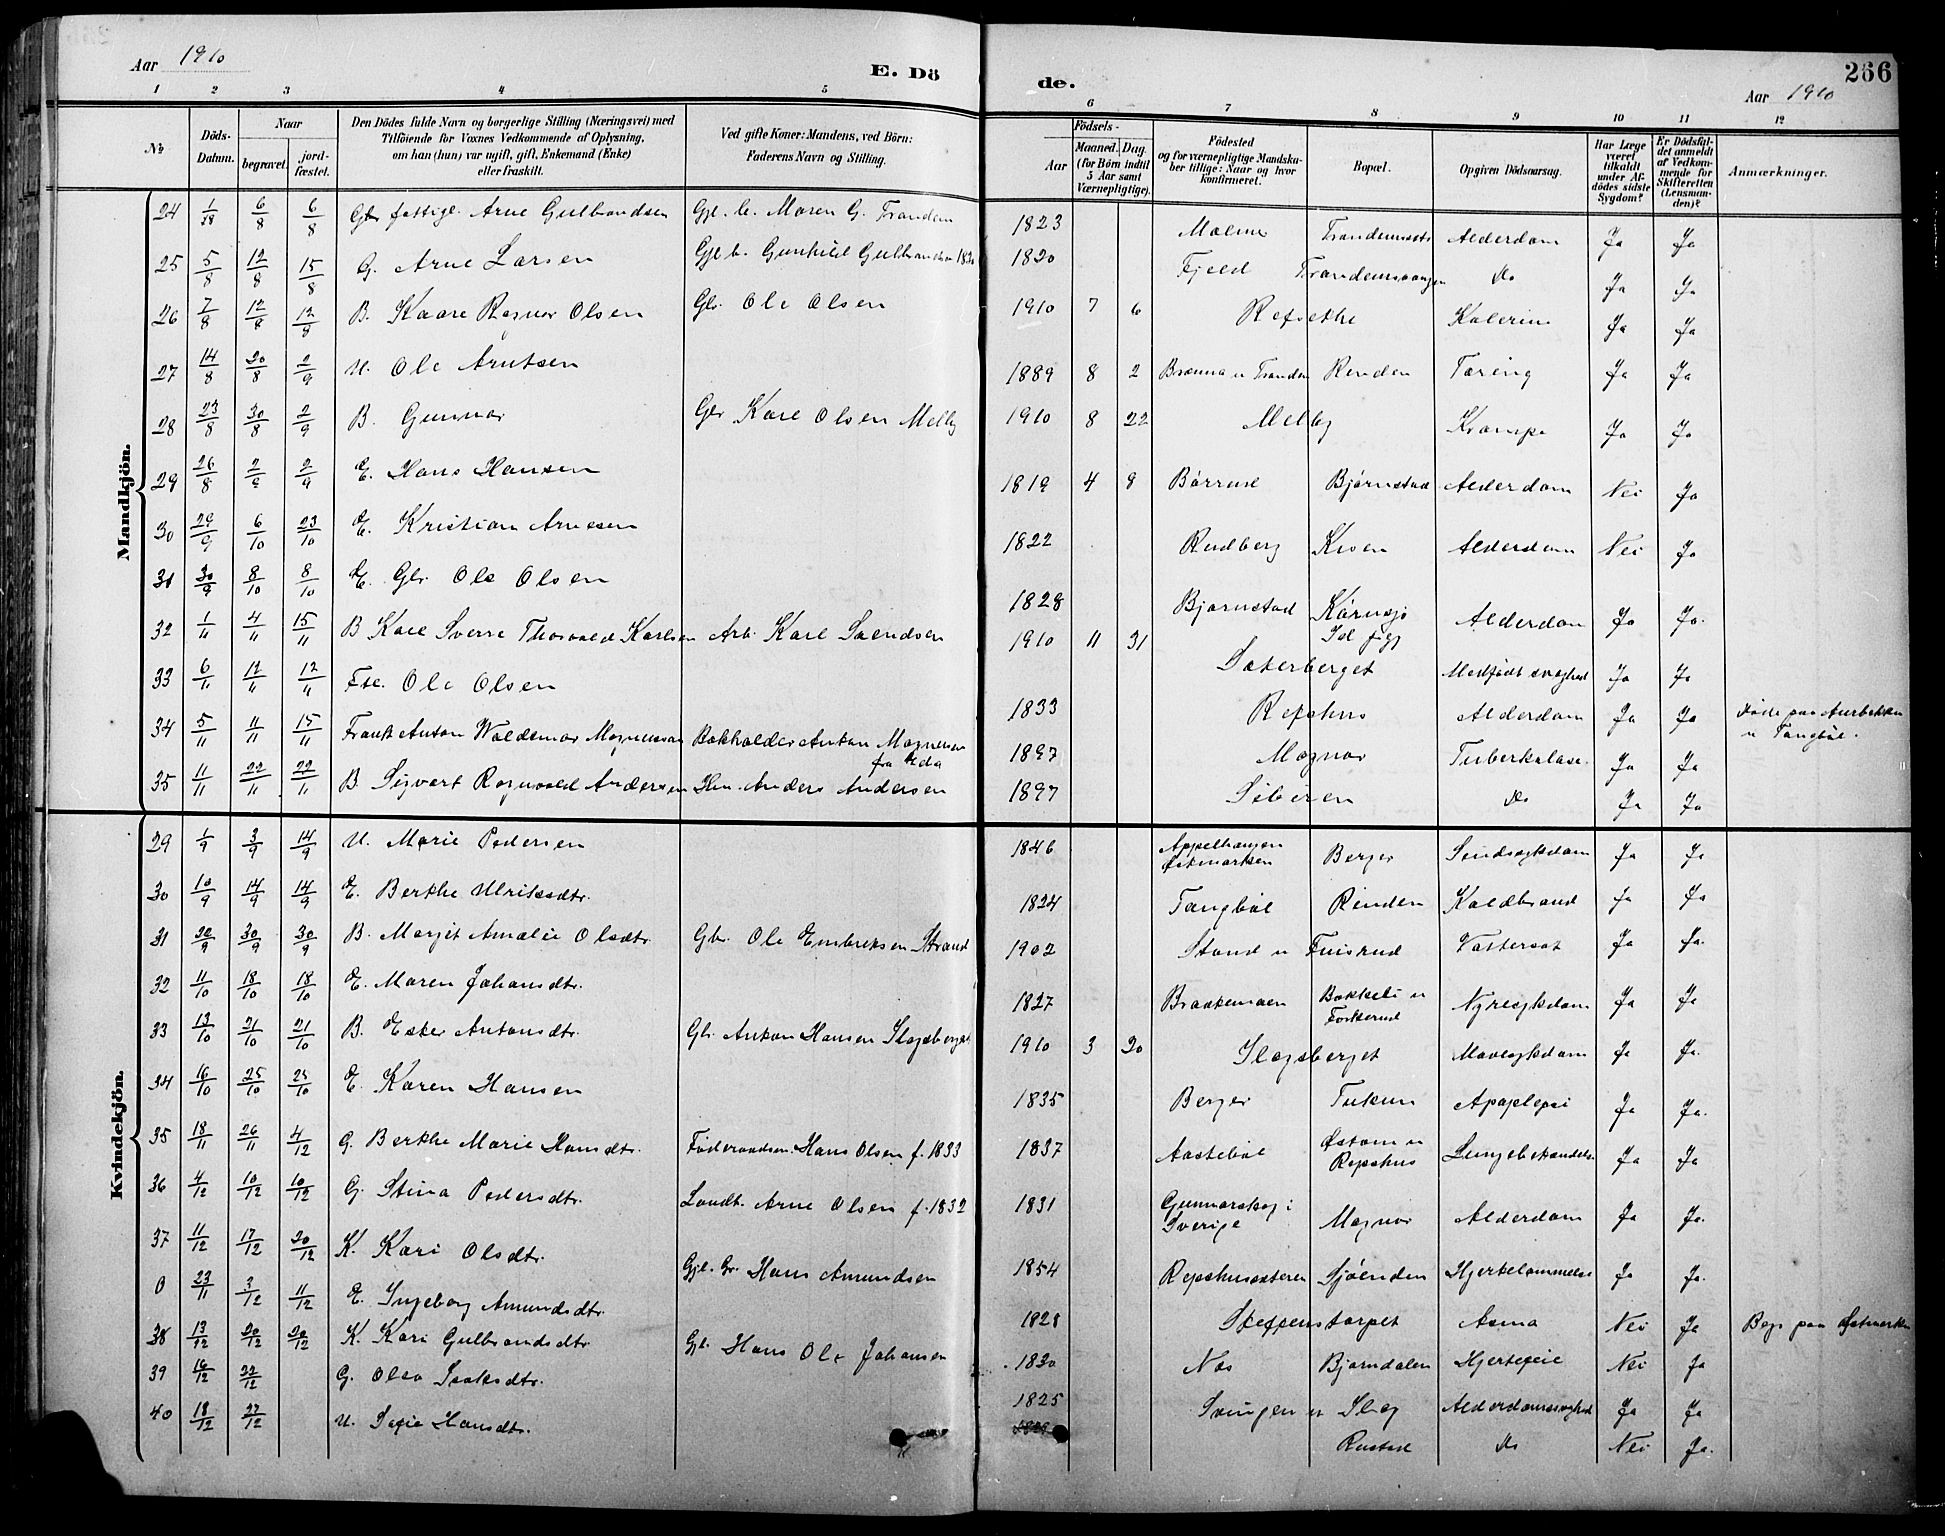 Aar 1910
E. Dö
de.
266
Aar 1910
1 2 3 4 5 6 7 8 9 10 11 12
No.
Döds-Datum.
Naar
begravet.
jord-fæstet.
Den Dödes fulde Navn og borgerlige Stilling (Næringsvei) med
Tilföiende for Voxnes Vedkommende af Oplysning,
om han (hun) var ugift, gift, Enkemand (Enke)
eller fraskilt.
Ved gifte Koner: Mandens, ved Börn:
Faderens Navn og Stilling.
Födsels-
Aar
Maaned. Dag.
(for Börn indtil
5 Aar samt
Værnepligtige).
Födested
og for værnepligtige Mandska-
ber tillige: Naar og hvor
konfirmeret.
Bopæl.
Opgiven Dödsaarsag.
Har Læge
været
tilkaldt
under Af-
dödes sidste
Sygdom?
Er Dödsfal-
det anmeldt
af Vedkom-
mende for
Skifteretten
(Lensman-
den)?
Anmærkninger.
Mandkjön.
24 6/8 6/8 fattige Arne Gulbrandsen Maren G. Tranden 1823 Alderdom Ja Ja
25 5/8 12/8 15/8 G. Arne Larsen Gunhild 1820 Fjeld Do Ja Ja
26 7/8 12/8 12/8 B. Kaare Ragnar Olsen Gbr Ole Olsen 1910 7 6 Kolerine Ja Ja
27 14/8 20/8 2/9 U. Ole Arntsen 1889 8 2 Renden Tæring Ja Ja
28 23/8 30/8 2/9 B. Gunnar Gbr Karl Olsen Melby 1910 8 22 Melby Krampe Ja Ja
29 26/8 2/9 2/9 E. Hans Hansen 1819 4 9 Børrud Bjørnstad Alderdom Nei Ja
30 29/9 6/10 23/10 E. Kristian Arnesen 1822 Rudberg Alderdom Nei Ja
31 30/9 8/10 8/10 E. Gbr Ole Olsen 1828 Bjørnstad Alderdom Ja Ja.
32 1/11 4/11 15/11 B Karl Sverre Thorvald Karlsen Arb. Karl Svendsen 1910 11 31 Sæterberget Medfødt svaghed Ja Ja
33 6/11 12/11 12/11 Ole Olsen 1833 Repshus Alderdom Ja Ja Døde paa
34 5/11 11/11 15/11 Frank Anton Waldemar Magnussen Bokholder Anton Magnussen
fra Eda 1897 Magnor Tuberkulose Ja Ja
35 11/11 22/11 22/11 B Sigvart Ragnvald Andersen Anders Andersen 1897 Sibiren Do Ja Ja
Kvindekjön.
29 1/9 3/9 14/9 U. Marie Pedersen 1846 Berger Sindssygdom Ja Ja
30 10/9 14/9 14/9 E. Berthe Ulriksdtr. 1824 Tangbøl Rinden Koldbrand Ja Ja
31 20/9 30/9 30/9 B. Marjit Amalie Olsdtr. Gbr. Ole Embriksen Strand 1902 Ja Ja.
32 11/10 18/10 18/10 E. Maren Johansdtr. 1827 Nyresygdom Ja Ja
33 13/10 21/10 21/10 B. Ester Antonsdtr. Gbr Anton Hansen Slogsberget 1910 3 20 Slogsberget Mavesygdom Ja Ja.
34 16/10 25/10 25/10 E. Karen Hansen 1835 Berger Apoplepsi Ja Ja.
35 18/11 26/11 4/12 G. Berthe Marie Hansdtr. Føderaadsm. Hans Olsen f. 1833 1837 Aastebøl Repshus Lungebetændelse Ja Ja
36 4/12 10/12 10/12 G. Stina Pedersdtr. Landh. Arne Olsen f. 1832 1831 Gunnarskog i
Sverige Magnor Alderdom Ja Ja.
37 11/12 17/12 20/12 K. Kari Olsdtr. Hans Amundsen 1854 Repshussæteren Sjøenden Hjertelammelse Ja Ja.
0 23/11 3/12 11/12 E. Ingeborg Amundsdtr. 1828 Steffenstorpet Asma Nei Ja Begr. paa Østmarken
38 13/12 20/12 20/12 K. Kari Gulbrandsdtr. Hans Ole Johansen 1830 Nos Bjørndalen Hjertefeil Nei Ja
39 16/12 22/12 G. Olea 1825 Svingen Slog Alderdomssvaghed Ja Ja
40 18/12 27/12 U. Sofie Hansdtr. Rustad Do Nei Ja.